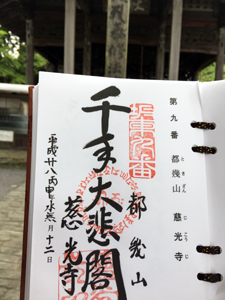 第九番 都幾山 慈光寺
ときさん じこうじ
坂東九番
都幾山
千手大悲閣
慈光寺
平成廿八丙申年水無月十二日